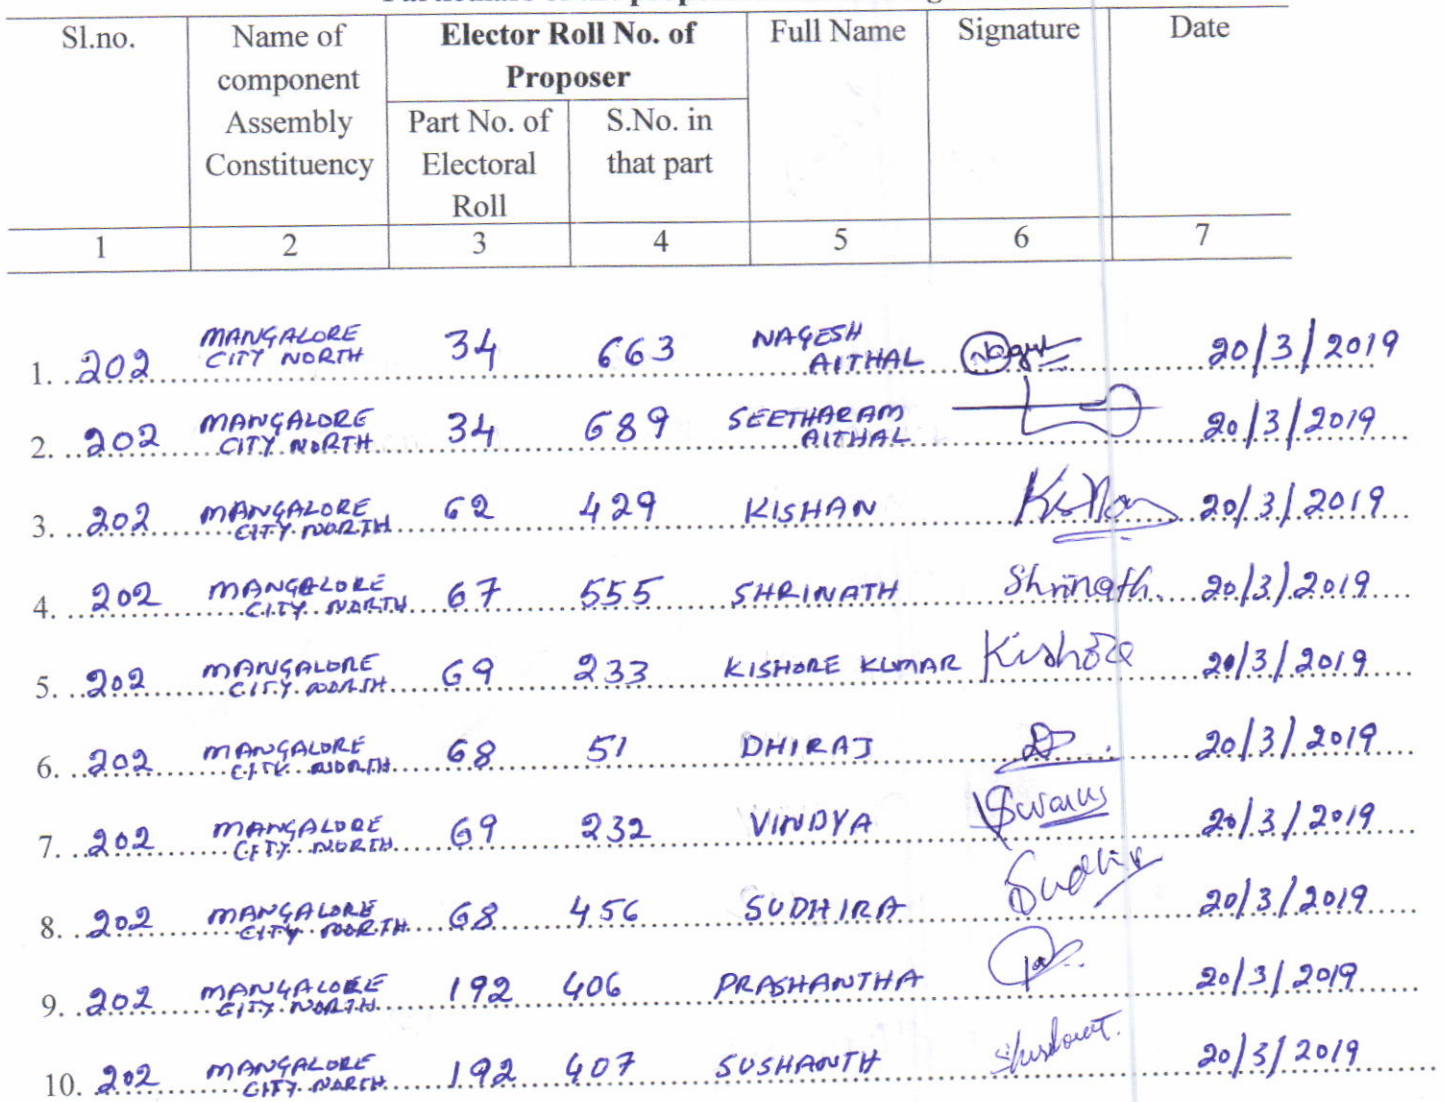 Sl.no. Name of component Assembly Constituency Elector Roll No. of Proposer Full Name Signature Date
Part No. of Electoral Roll S.No. in that part
1 2 3 4 5 6 7
1. 202 MANGALORE CITY NORTH 34 663 NAGESH AITHAL 20/3/2019
2. 202 MANGALORE CITY NORTH 34 689 SEETHARAM AITHAL 20/3/2019
3. 202 MANGALORE CITY NORTH 62 429 KISHAN 20/3/2019
4. 202 MANGALORE CITY NORTH 67 555 SHRINATH Shrinath. 20/3/2019
5. 202 MANGALORE CITY NORTH 69 233 KISHORE KUMAR Kishore 20/3/2019
6. 202 MANGALORE CITY NORTH 68 51 DHIRAJ 20/3/2019
7. 202 MANGALORE CITY NORTH 69 232 VINDYA 20/3/2019
8. 202 MANGALORE CITY NORTH 68 456 SUDHIRA Sudhir 20/3/2019
9. 202 MANGALORE CITY NORTH 192 406 PRASHANTHA 20/3/2019
10. 202 MANGALORE CITY NORTH 192 407 SUSHANTH 20/3/2019